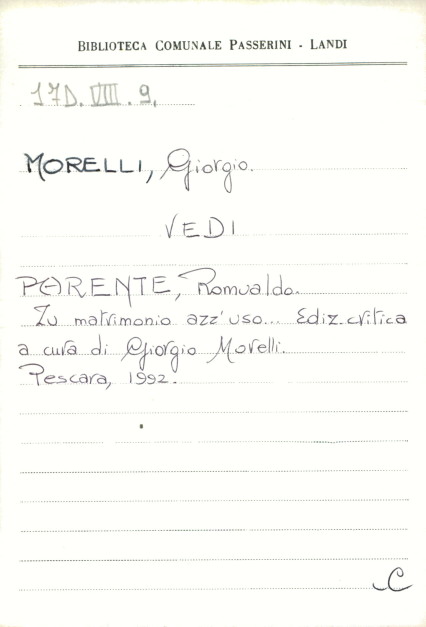 BIBLIOTECA COMUNALE PASSERINI - LANDI
17D. VIII. 9.
MORELLI, Giorgio.
VEDI
PARENTE, Romualdo.
Zu matrimonio azz'uso... Ediz. critica
a cura di Giorgio Morelli.
Pescara, 1992.
C